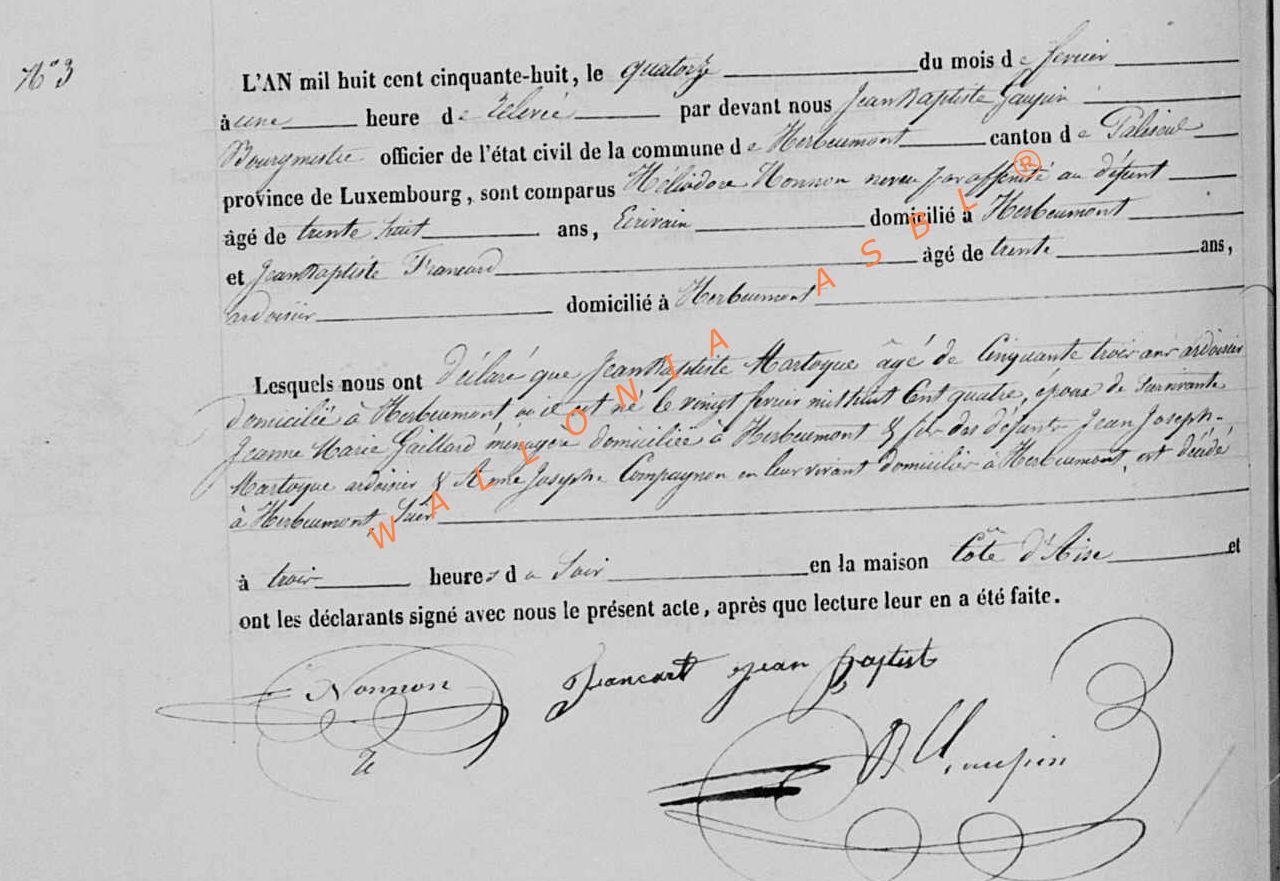 N° 3
L'AN mil huit cent cinquante-huit, le quatorze du mois de fevrier
à une heure de relevée par devant nous Jean Baptiste Gaupin
Bourgmestre officier de l'état civil de la commune de Herbeumont canton de Paliseul
province de Luxembourg, sont comparus Héliodore Nonnon neveu par affinité au défunt
âgé de trente huit ans, Ecrivain domicilié à Herbeumont
et Jean Baptiste Francard âgé de trente ans,
ardoisier domicilié à Herbeumont
Lesquels nous ont déclaré que Jean Baptiste Martoque âgé de Cinquante trois ans ardoisier
domicilié à Herbeumont où il est né le vingt fevrier mil huit Cent quatre, epoux de Survivante
Jeanne Marie Gaillard ménagère domiciliée à Herbeumont & fils des défunts Jean Joseph
Martoque ardoisier & Anne Joseph Compagnon en leur vivant domiciliés à Herbeumont, est décédé
à Herbeumont, hier
à trois heures du Soir en la maison Côte d'Aise et
ont les déclarants signé avec nous le présent acte, après que lecture leur en a été faite.
Nonnon Francart jean baptist
JB Gaupin
WALLONIA ASBL ®